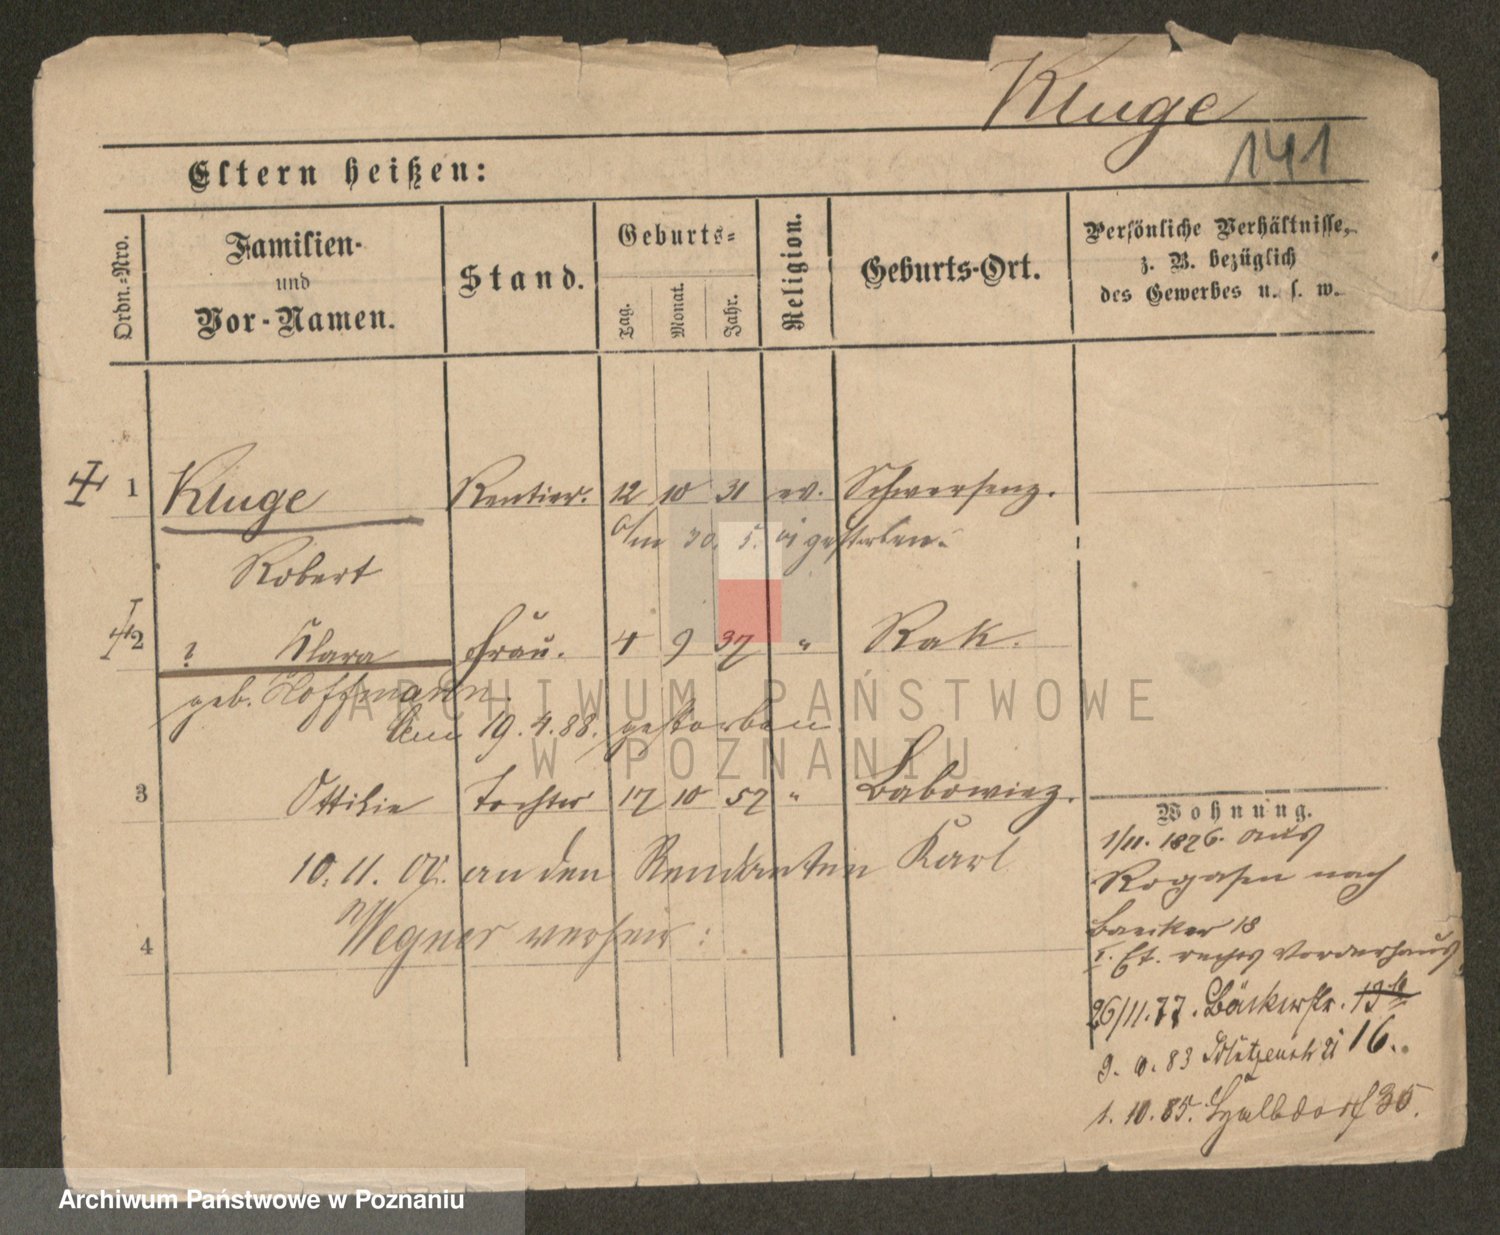 Kluge
141
Eltern heißen:
Ordn.-Nro.
Familien-
und
Vor-Namen.
Stand.
Geburts-
Tag.
Monat.
Jahr.
Religion.
Geburts-Ort.
Persönliche Verhältnisse,
z. B. bezüglich
des Gewerbes u. s. w.
1 Kluge Rentier. 12 10 31 ev. Schwersenz.
Am 30. 5. gestorben.
Robert
2 ? Clara Frau. 4 9 37 " Rak.
geb. Hoffmann.
Am 19. 4. 88. gestorben.
3 Ottilie Tochter 17 10 57 " Babowiez.
10. 11. an den Rendanten Karl
Wegner verheir:
4
Wohnung.
1/11. 1876. aus
Rogasen nach
Baecker 18
I. Et. rechts Vorderhaus
26/11. 77. Bäckerstr. 13b
9. 83 16.
1. 10. 85. Halbdorf 35.
ARCHIWUM PAŃSTWOWE
W POZNANIU
Archiwum Państwowe w Poznaniu